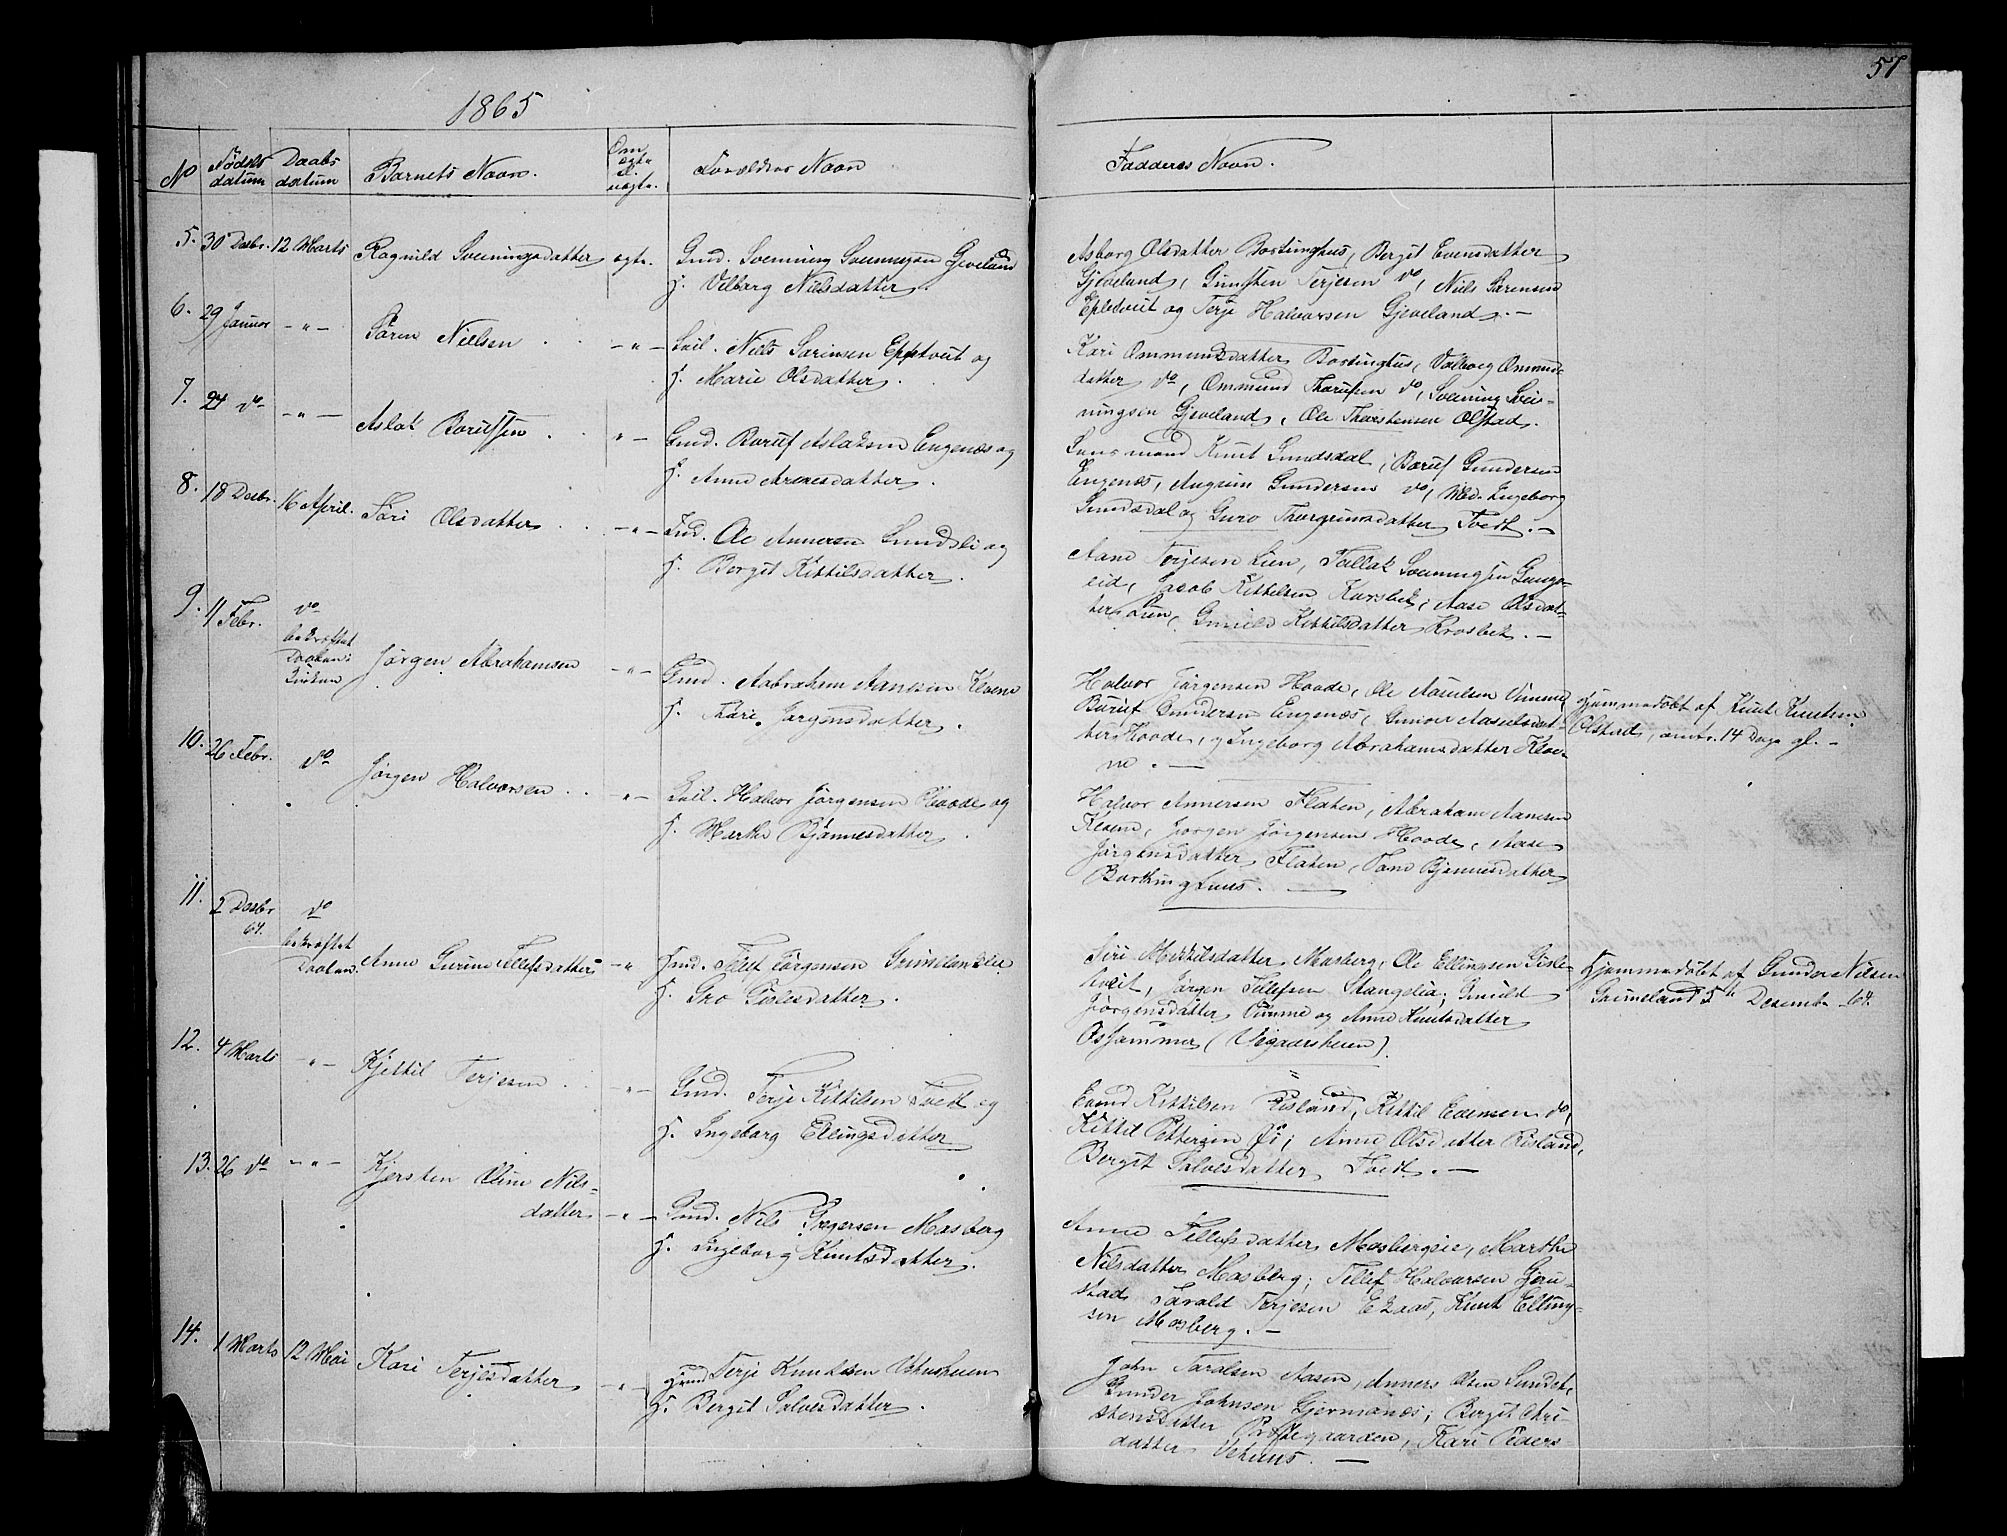 57
1865
No
Fødsels datum
Daabs datum
Barnets Navn.
Om ægte el. uægte.
Forældres Navn
Fadderes Navn.
5. 30 Desbr. 12 Marts Ragnild Sveiningsdatter ægte. Gmd. Sveining Sveiningsen Gjeveland
f. Vilborg Nielsdatter.
Asborg Olsdatter Bostinghus, Bergit Evensdatter
Gjeveland, Gunsten Terjesen do, Niels Sørensen
Epletveit og Terje Halvorsen Gjeveland. —
6. 29 Januar — " — Søren Nielsen . . — " — Leil. Niels Sørensen Epletveit og
f. Marie Olsdatter.
Kari Ommundsdatter Bostinghus, Valborg Ommunds-
datter do, Ommund do, Sveining Svei-
ningsen Gjeveland, Ole Thorstensen Ølstad.
7. 24 do — " — Aslak Børufsen . . " — Gmd. Børuf Aslaksen Engenæs og
f. Anne Arnesdatter.
Knut Sundsdal, Børuf Gundersen
Engenæs, Augrim Gundersen do, Mad. Ingeborg
Sundsdal og Guro Thorgrimsdatter Tvedt. —
8. 18 Desbr. 16 April. Siri Olsdatter . . — " — Ind. Ole Annersen Sundsli og
f. Bergit Kittilsdatter.
Aane Terjesen Lien, Tallak Sveiningsen Lunge-
eid, Jacob Kittelsen Karsbek, Aase Olsdat-
ter Lien, Gunild Kittilsdatter Krosbek. —
9. 11 Febr. do
bekræftet
Daaben i
Kirken
Jørgen Abrahamsen — " — Gmd. Aabraham Aanesen Klevene
f. Thori Jørgensdatter.
Halvor Jørgensen Haade, Ole Asulsen Vimme,
Børuf Gundersen Engenæs, Gunvor Aasulsdat-
ter Haade, og Ingeborg Abrahamsdatter Kleve-
ne. —
Hjemmedøbt af Knut Knutsen
Ølstad, omtr. 14 Dage gl. —
10. 26 Febr. do Jørgen Halvorsen . . " — Leil. Halvor Jørgensen Haade og
f. Marthe Bjønnesdatter.
Halvor Annersen Flaten, Abraham Aanesen
Klevene, Jørgen Jørgensen Haade, Aase
Jørgensdatter Flaten, Tone Bjønnesdatter
Bostinghus. —
11. 2 Desbr
64.
do
bekræftet
Daaben.
Anne Gurine Tellefsdatter — " Gmd. Tellef Jørgensen Grimelandslie
f. Gro Gislesdatter.
Siri Mikkilsdatter Mosberg, Ole Ellingsen Gisle-
tveit, Jørgen Tellefsen Stangelia, Gunild
Jørgensdatter Vimme og Anne Knutsdatter
Oshammer (Vegaarsheien).
Hjemmedøbt af Gunder Nilsen
Grimeland 5te Desemb. 64.
12. 4 Marts — " — Kjittil Terjesen . . " — Gmd. Terje Kittilsen Tvedt og
f. Ingeborg Ellingsdatter
Evind Kittilsen Risland, Kittil Edemsen do,
Kittil Pettersen do; Anne Olsdatter Risland,
Bergit Salvesdatter Tvedt. —
13. 26 do — " — Kjersten Oline Nils-
datter — " — Gmd. Nils Gregersen Mosberg
f. Ingeborg Knutsdatter.
Anne Tellefsdatter Mosbergeie, Marthe
Nilsdatter Mosberg; Tellef Halvorsen Gjeru-
stad Tarald Terjesen Egaas, Knut Elling-
sen Mosberg. —
14. 1 Marts 12 Mai Kari Terjesdatter — " — Gmd Terje Knutsen Vehusheien
f. Bergit Salvesdatter.
John Taralsen Aasen, Anners Olsen Sundet,
Gunder Johnsen Gjermonæs, Bergit Chri-
stensdatter Prestegaarden, Kari Peders
datter Vehuus. —